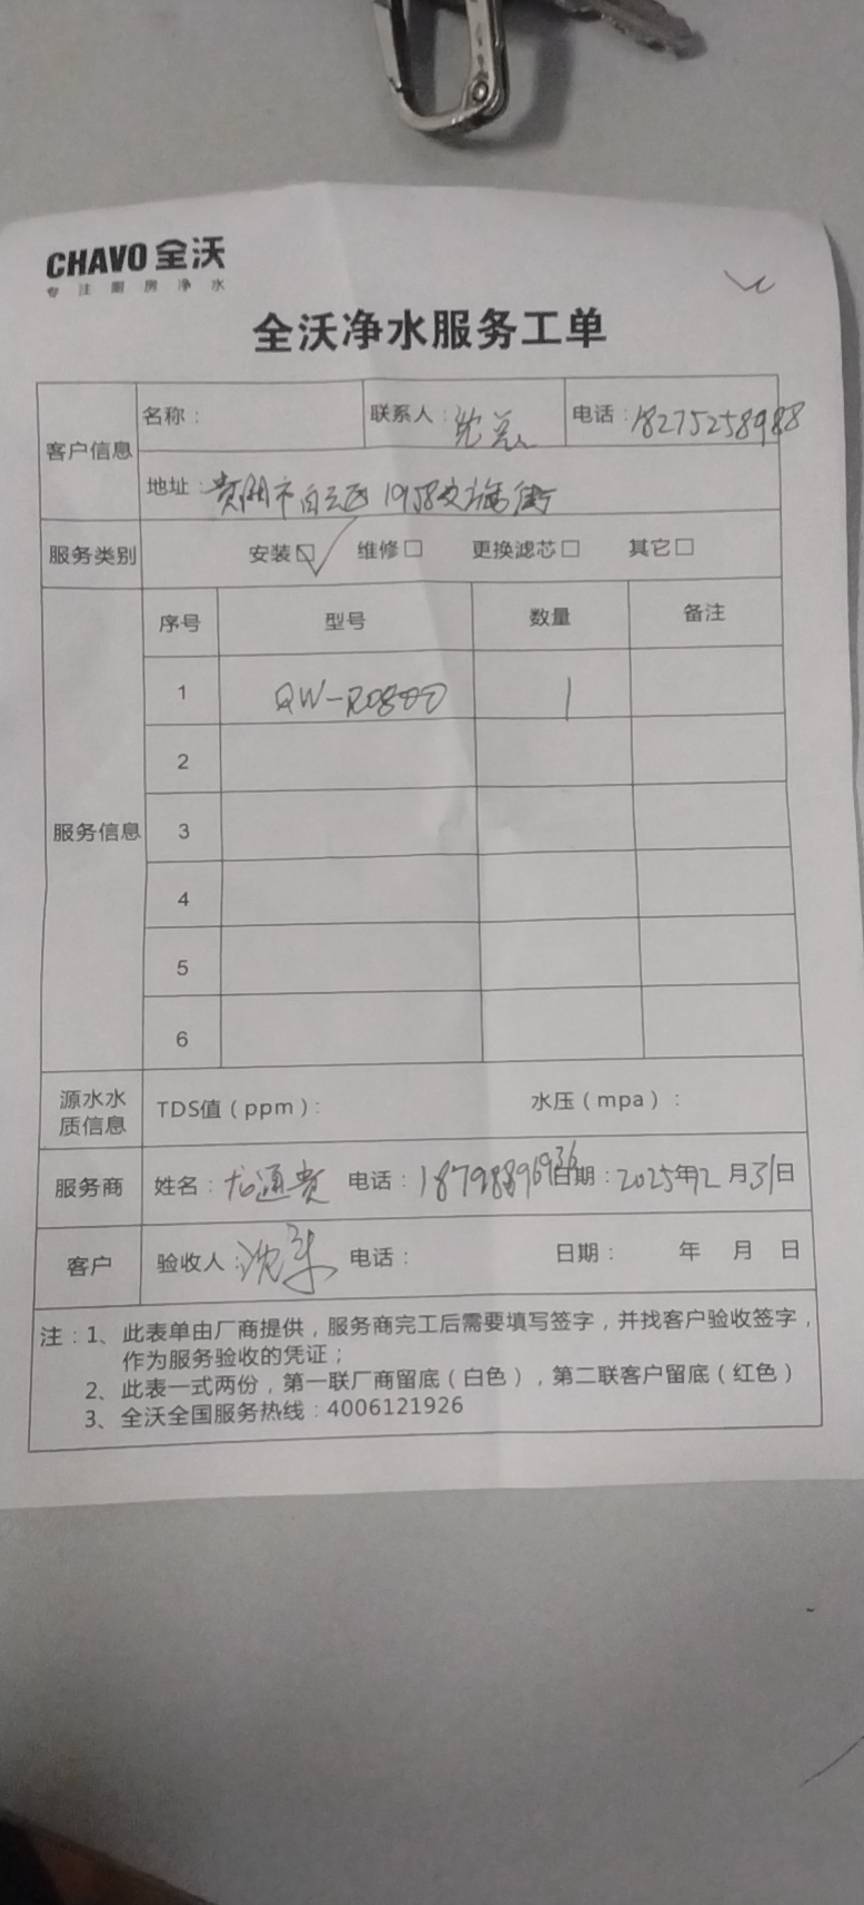 CHAVO 全沃
专注厨房净水
全沃净水服务工单
客户信息 名称： 联系人：沈总 电话：18275258988
地址：贵阳市白云区1958文化街
服务类别 安装☑ 维修□ 更换滤芯□ 其它□
服务信息 序号 型号 数量 备注
1 QW-RO800 1
2
3
4
5
6
源水水质信息 TDS值（ppm）： 水压（mpa）：
服务商 姓名：龙通贵 电话：18798896936 日期：2025年12月31日
客户 验收人：沈 电话： 日期： 年 月 日
注：1、此表单由厂商提供，服务商完工后需要填写签字，并找客户验收签字，
作为服务验收的凭证；
2、此表一式两份，第一联厂商留底（白色），第二联客户留底（红色）
3、全沃全国服务热线：4006121926